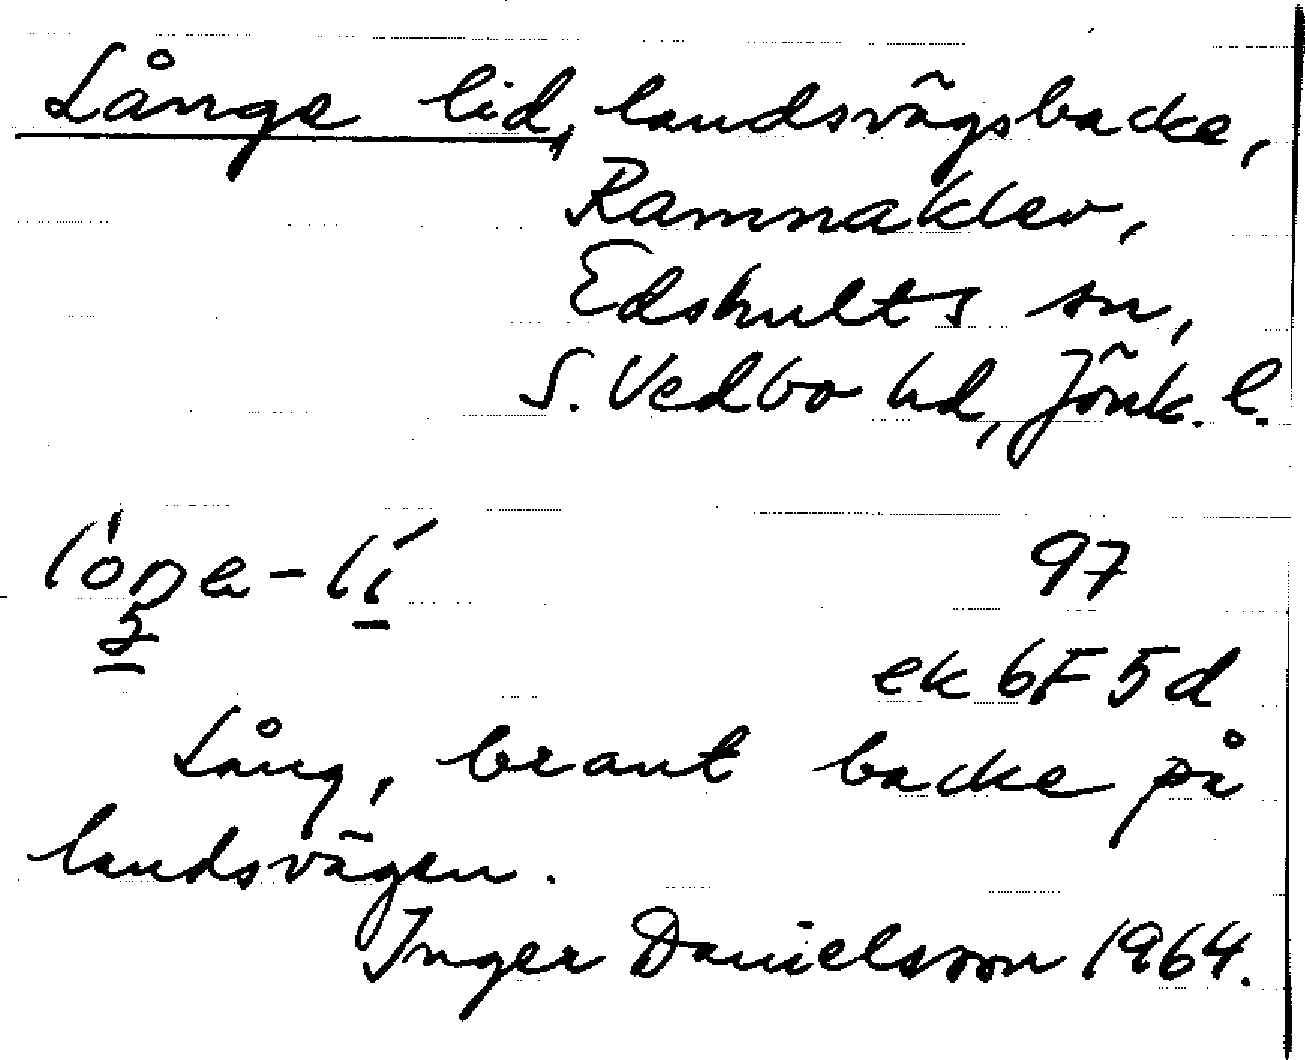 Långe lid, landsvägsbacke,
Ramnaklev,
Edshults sn,
S. Vedbo hd, Jönk. l.
97
ek 6F 5d
Lång, brant backe på
landsvägen.
Inger Danielsson 1964.